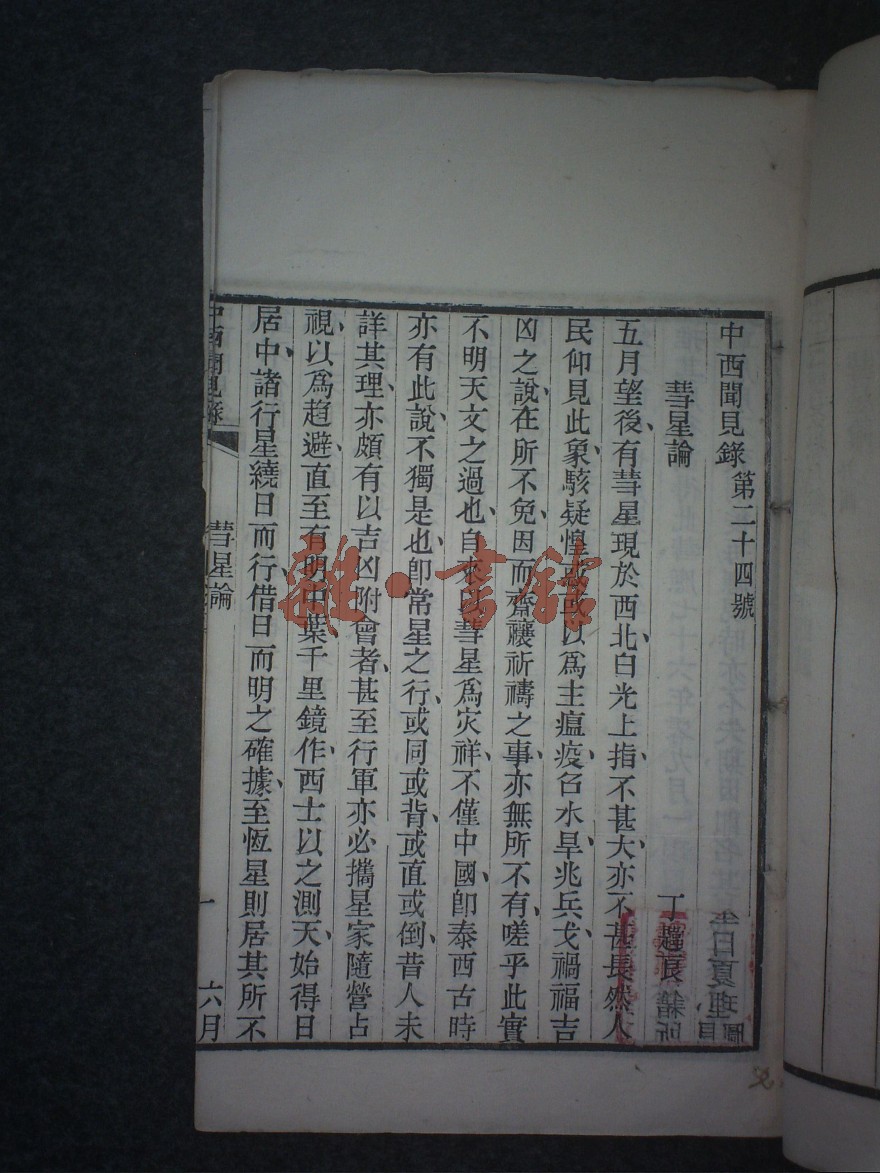 中西聞見錄 第二十四號
彗星論 丁韙良
五月望後、有彗星現於西北、白光上指、不甚大、亦不甚長、然人
民仰見此象、駭疑惶惑、或以爲主瘟疫、召水旱、兆兵戈、禍福吉
凶之說、在所不免、因而齋禳祈禱之事、亦無所不有、嗟乎此實
不明天文之過也、自來以彗星爲灾祥、不僅中國、卽泰西古時
亦有此說、不獨是也、卽常星之行、或同或背、或直或倒、昔人未
詳其理、亦頗有以吉凶附會者、甚至行軍亦必攜星家隨營占
視、以爲趨避、直至有明中葉千里鏡作、西士以之測天、始得日
居中、諸行星繞日而行、借日而明之確據、至恆星則居其所不
中西聞見錄 彗星論 一 六月
雜·書館